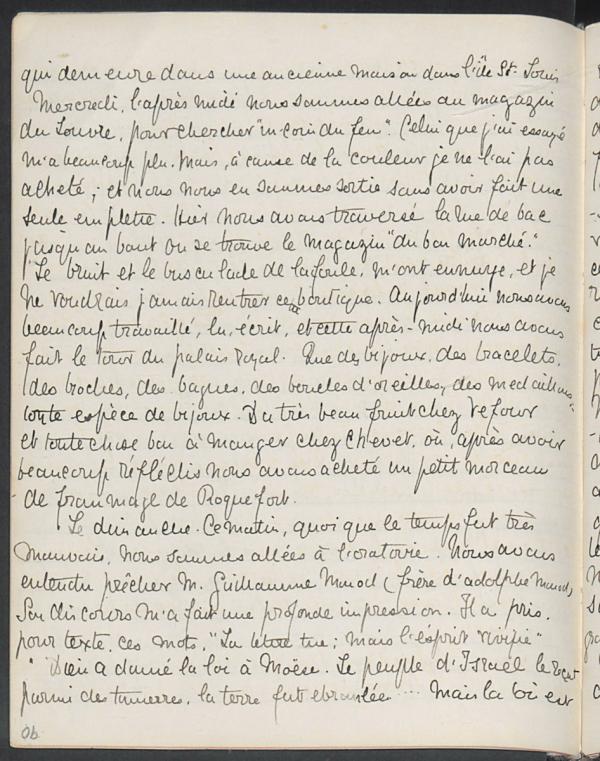 qui demeure dans une ancienne maison dans l'île St. Louis
Mercredi, l'après midi nous sommes allées au magazin
du Louvre, pour chercher "un coin du feu". Celui que j'ai essayé
m'a beaucoup plu. Mais, à cause de la couleur je ne l'ai pas
acheté; et nous nous en sommes sortie sans avoir fait une
seule emplette. Hier nous avons traversé la rue de bac
jusqu'au bout ou se trouve le magazin "du bon marché."
Le bruit et le busculade de la foule, m'ont ennuyé, et je
ne voudrais jamais rentrer ce boutique. Aujourd'hui nous avons
beaucoup travaillé, lu, écrit, et cette après-midi nous avons
fait le tour du palais royal. Que des bijoux, des bracelets,
des broches, des bagues, des boucles d'oreilles, des medaillons,
toute espèce de bijoux. Du très beau fruit chez Vefour
et toute chose bon à manger chez Chevet, où, après avoir
beaucoup réfléchis nous avons acheté un petit morceau
de frommage de Roquefort.
Le dimanche. Ce matin, quoi que le temps fut très
mauvais, nous sommes allées à l'oratorie. Nous avons
entendu prêcher M. Guillaumme Monod (frère d'adolphe Monod)
Son discours m'a fait une profonde impression. Il a pris.
pour texte, ces mots, "La lettre tue; mais l'esprit vivifie"
"Dieu a donné la loi à Moëse. Le peuple d'Israël le reçut
parmi des tonnerres, la terre fut ebranlée .... Mais la loi est